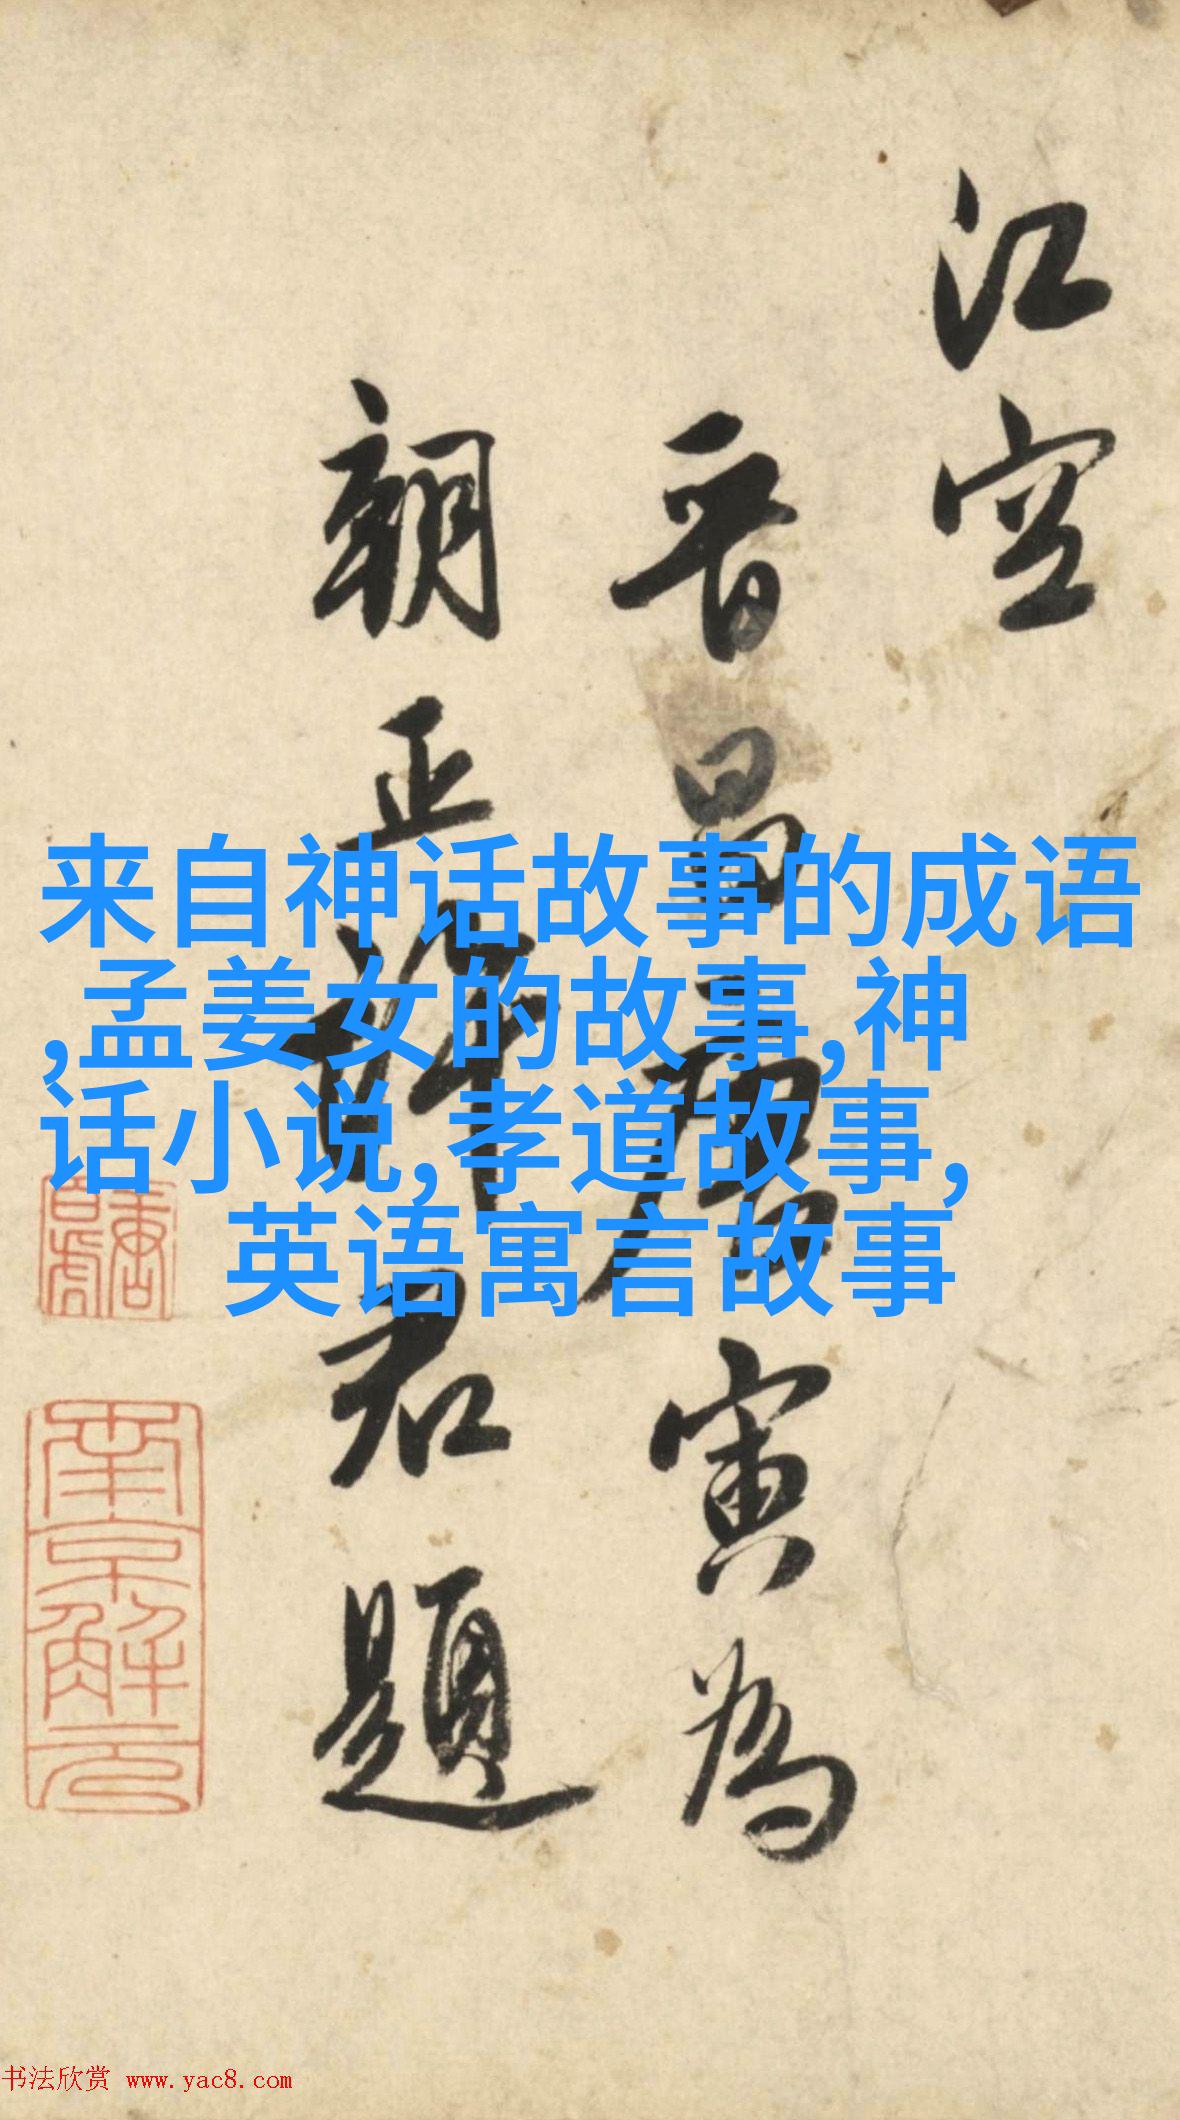 江空
晉昌唐寅為
朝正許君題
唐白虎
南京解元
来自神话故事的成语
,孟姜女的故事,神
话小说,孝道故事,
英语寓言故事
书法欣赏 www.yac8.com